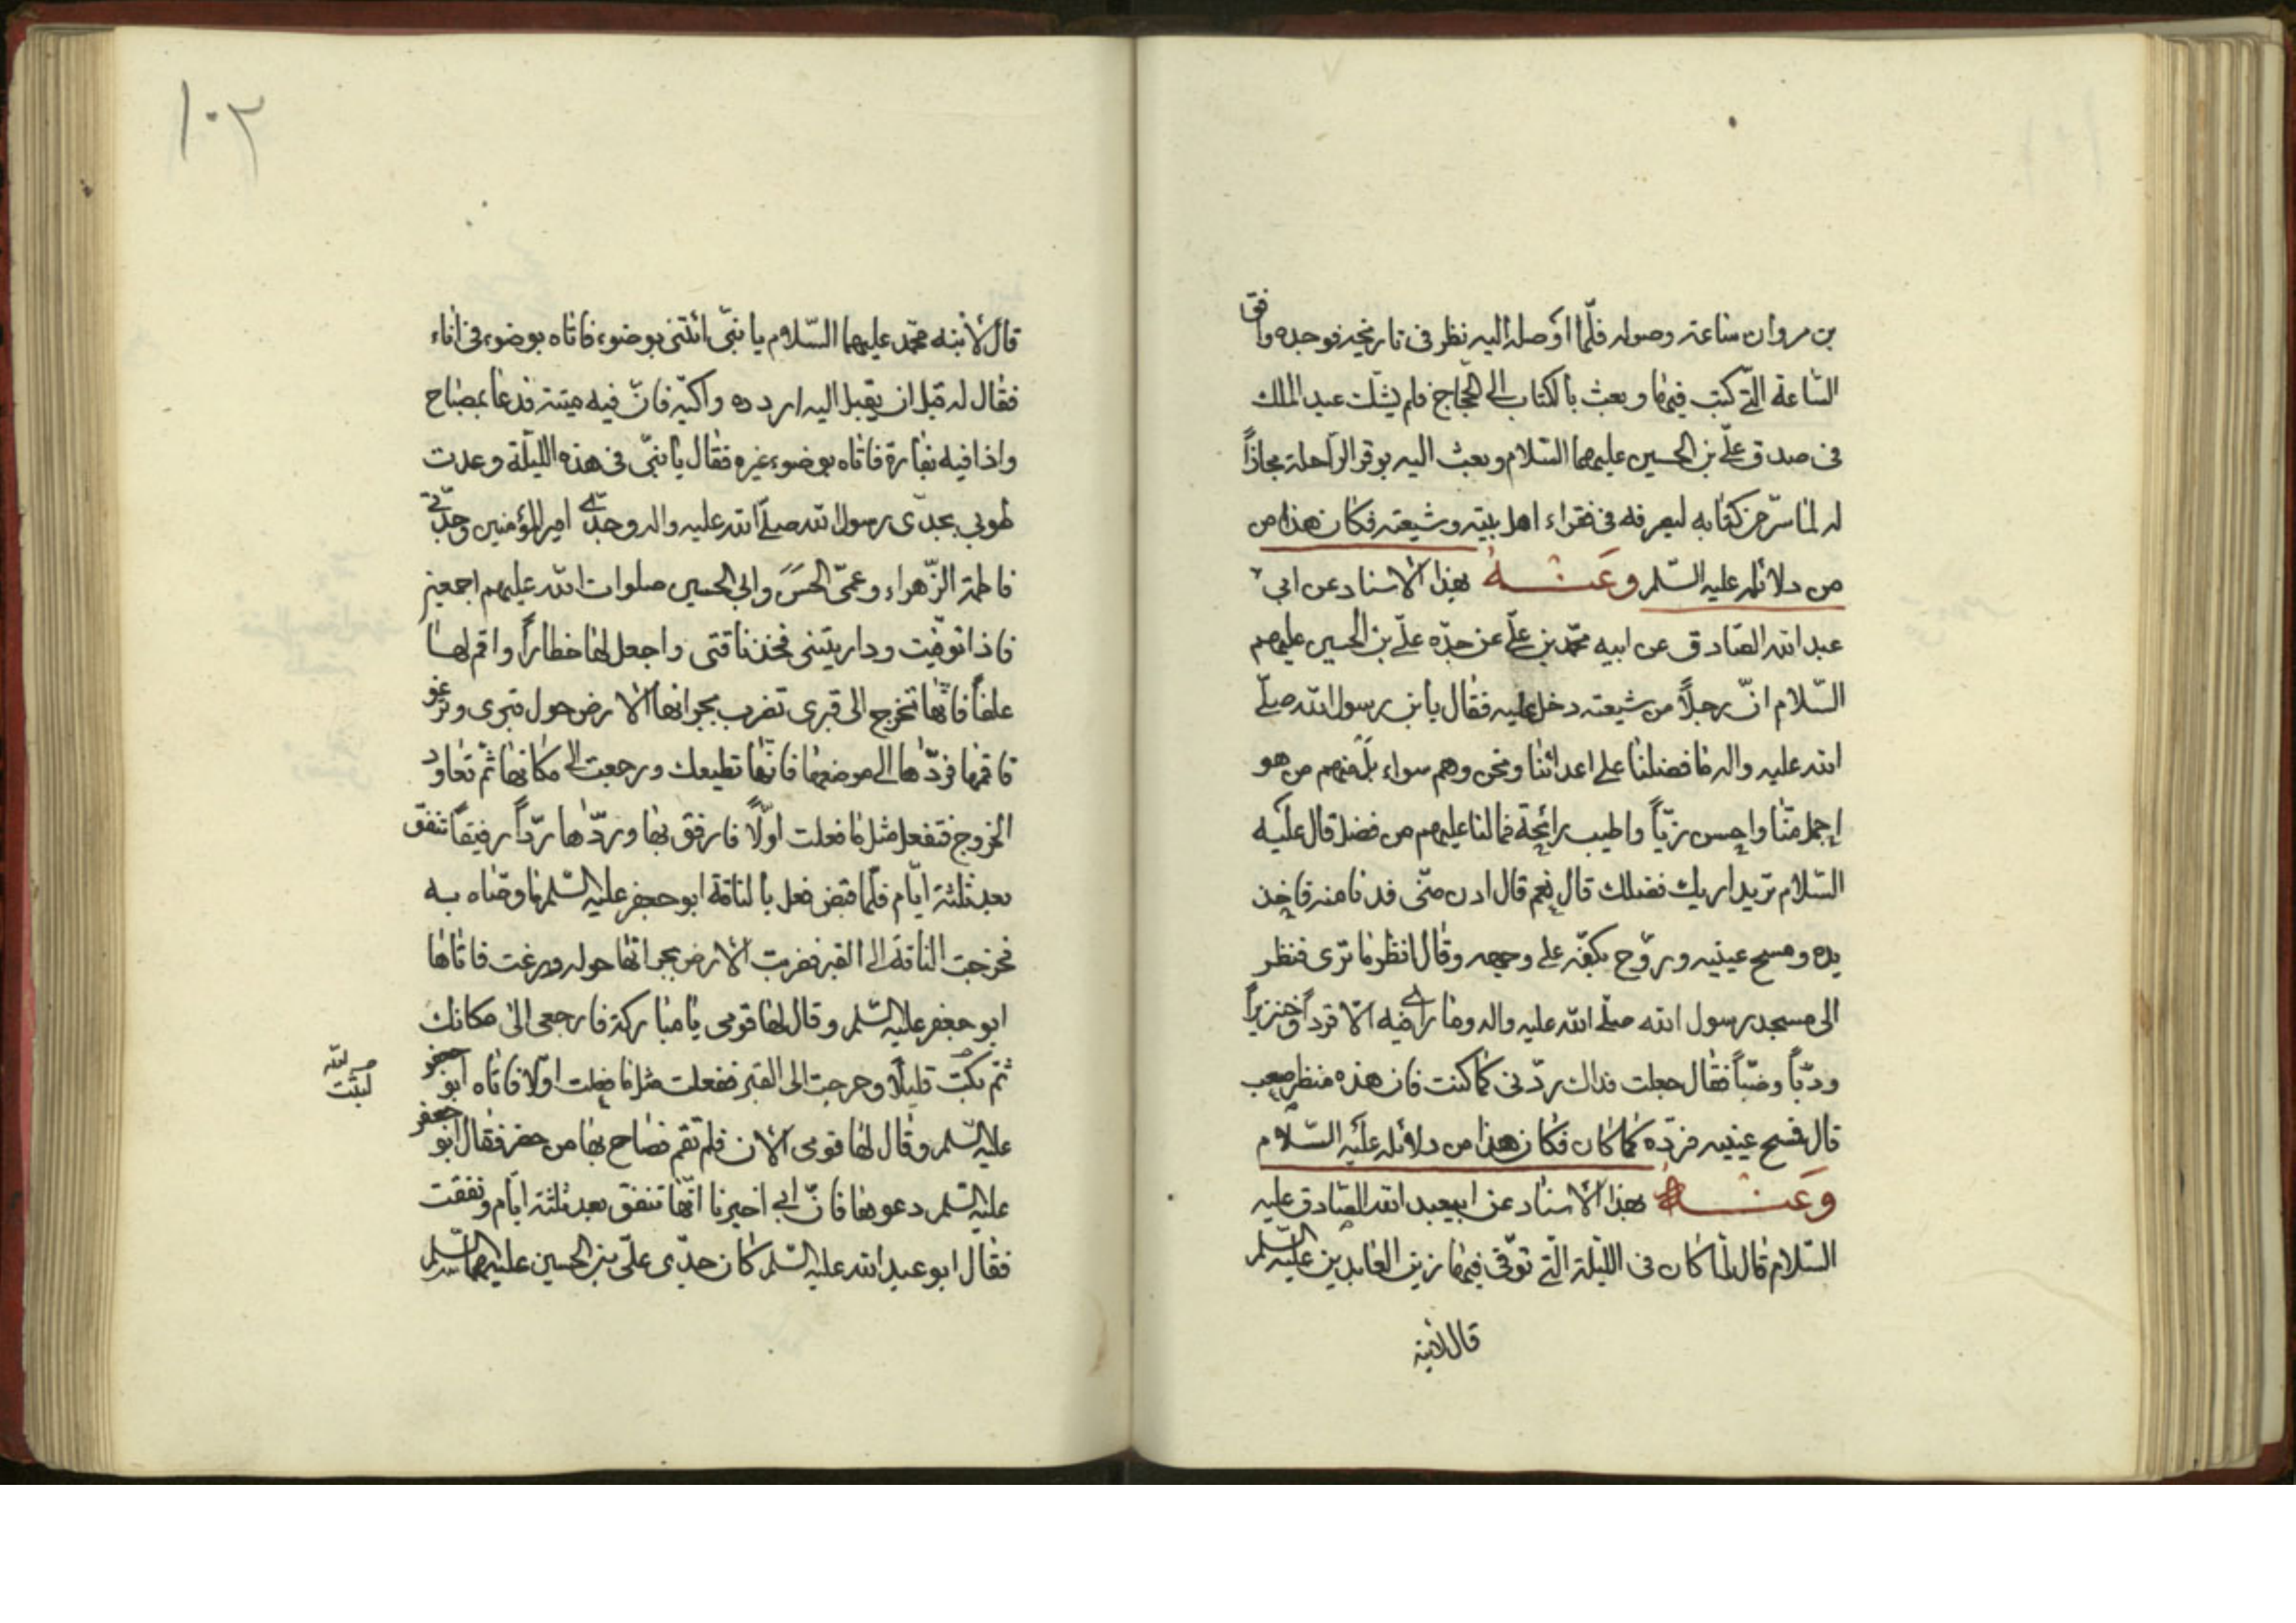 بن مروان ساعة وصوله فلمّا اوصله اليه نظر فى تاريخه فوجده وافق
السّاعة الّتى كتب فيها وبعث بالكتاب الى الحجّاج فلم يشكّ عبد الملك
فى صدق علىّ بن الحسين عليهما السّلام وبعث اليه بوقر الرّاحلة مجازاً
له لما سرّ من كتابه ليصرفه فى فقراء اهل بيته وشيعته فكان هذا من
من دلائله عليه السّلم وعنه بهذا الاسناد عن ابى
عبد الله الصّادق عن ابيه محمّد بن علىّ عن جدّه علىّ بن الحسين عليهم
السّلام انّ رجلاً من شيعته دخل عليه فقال يا بن رسول الله صلّى
الله عليه واله ما فضلنا على اعدائنا ونحن وهم سواء بل منهم من هو
اجمل منّا واحسن زيّاً واطيب رائحة فما لنا عليهم من فضل قال عليه
السّلام تريد اريك فضلك قال نعم قال ادن منّى فدنا منه فاخذ
يده ومسح عينيه وروّح بكفّه على وجهه وقال انظر ما ترى فنظر
الى مسجد رسول الله صلّى الله عليه واله وما راى فيه الّا قرداً وخنزيراً
ودبّاً وضبّاً فقال جعلت فداك ردّنى كما كنت فان هذه منظر صعب
قال فمسح عينيه فردّه كما كان فكان هذا من دلائله عليه السّلام
وعنه بهذا الاسناد عن ابيعبد الله الصّادق عليه
السّلام قال لمّا كان فى اللّيلة الّتى توفّى فيها زين العابدين عليه السّلم
قال لابنه
١٠٢
قال لابنه محمّد عليهما السّلام يا بنىّ ائتنى بوضوء فاتاه بوضوء فى اناء
فقال له قبل ان يقبل اليه اردده واكبّه فانّ فيه ميتة فدعا بمصباح
واذا فيه بفارة فاتاه بوضوء غيره فقال يا بنىّ فى هذه اللّيلة وعدت
طوبى بجدّى رسول الله صلّى الله عليه واله وجدّى امير المؤمنين وجدّتى
فاطمة الزّهراء وعمّى الحسن وابى الحسين صلوات الله عليهم اجمعين
فاذا توفّيت وداريتنى فخذ ناقتى واجعل لها خطاراً واقم لها
علفاً فانّها تخرج الى قبرى تضرب بجرانها الارض حول قبرى وترغو
فاقمها فردّها الى موضعها فانّها تطيعك ورجعت الى مكانها ثمّ تعاود
الخروج فتفعل مثل ما فعلت اوّلاً فارفق بها وردّها ردّاً رفيقاً تنفق
بعد ثلثة ايّام فلمّا قبض فعل بالناقة ابو جعفر عليه السّلم ما وصّاه به
فخرجت الناقة الى القبر فضربت الارض بجرانها حوله ورغت فاتاها
ابو جعفر عليه السّلم وقال لها قومى يا مباركة فارجعى الى مكانك
ثمّ مكثت قليلاً وخرجت الى القبر ففعلت مثل ما فعلت اوّلا فاتاه ابو جعفر
لبثت
عليه السّلم وقال لها قومى الان فلم تقم فصاح بها من حضر فقال ابو جعفر
عليه السّلم دعوها فانّ ابى اخبرنا انّها تنفق بعد ثلثة ايّام ونفقت
فقال ابو عبد الله عليه السّلم كان جدّى علىّ بن الحسين عليهما السّلم